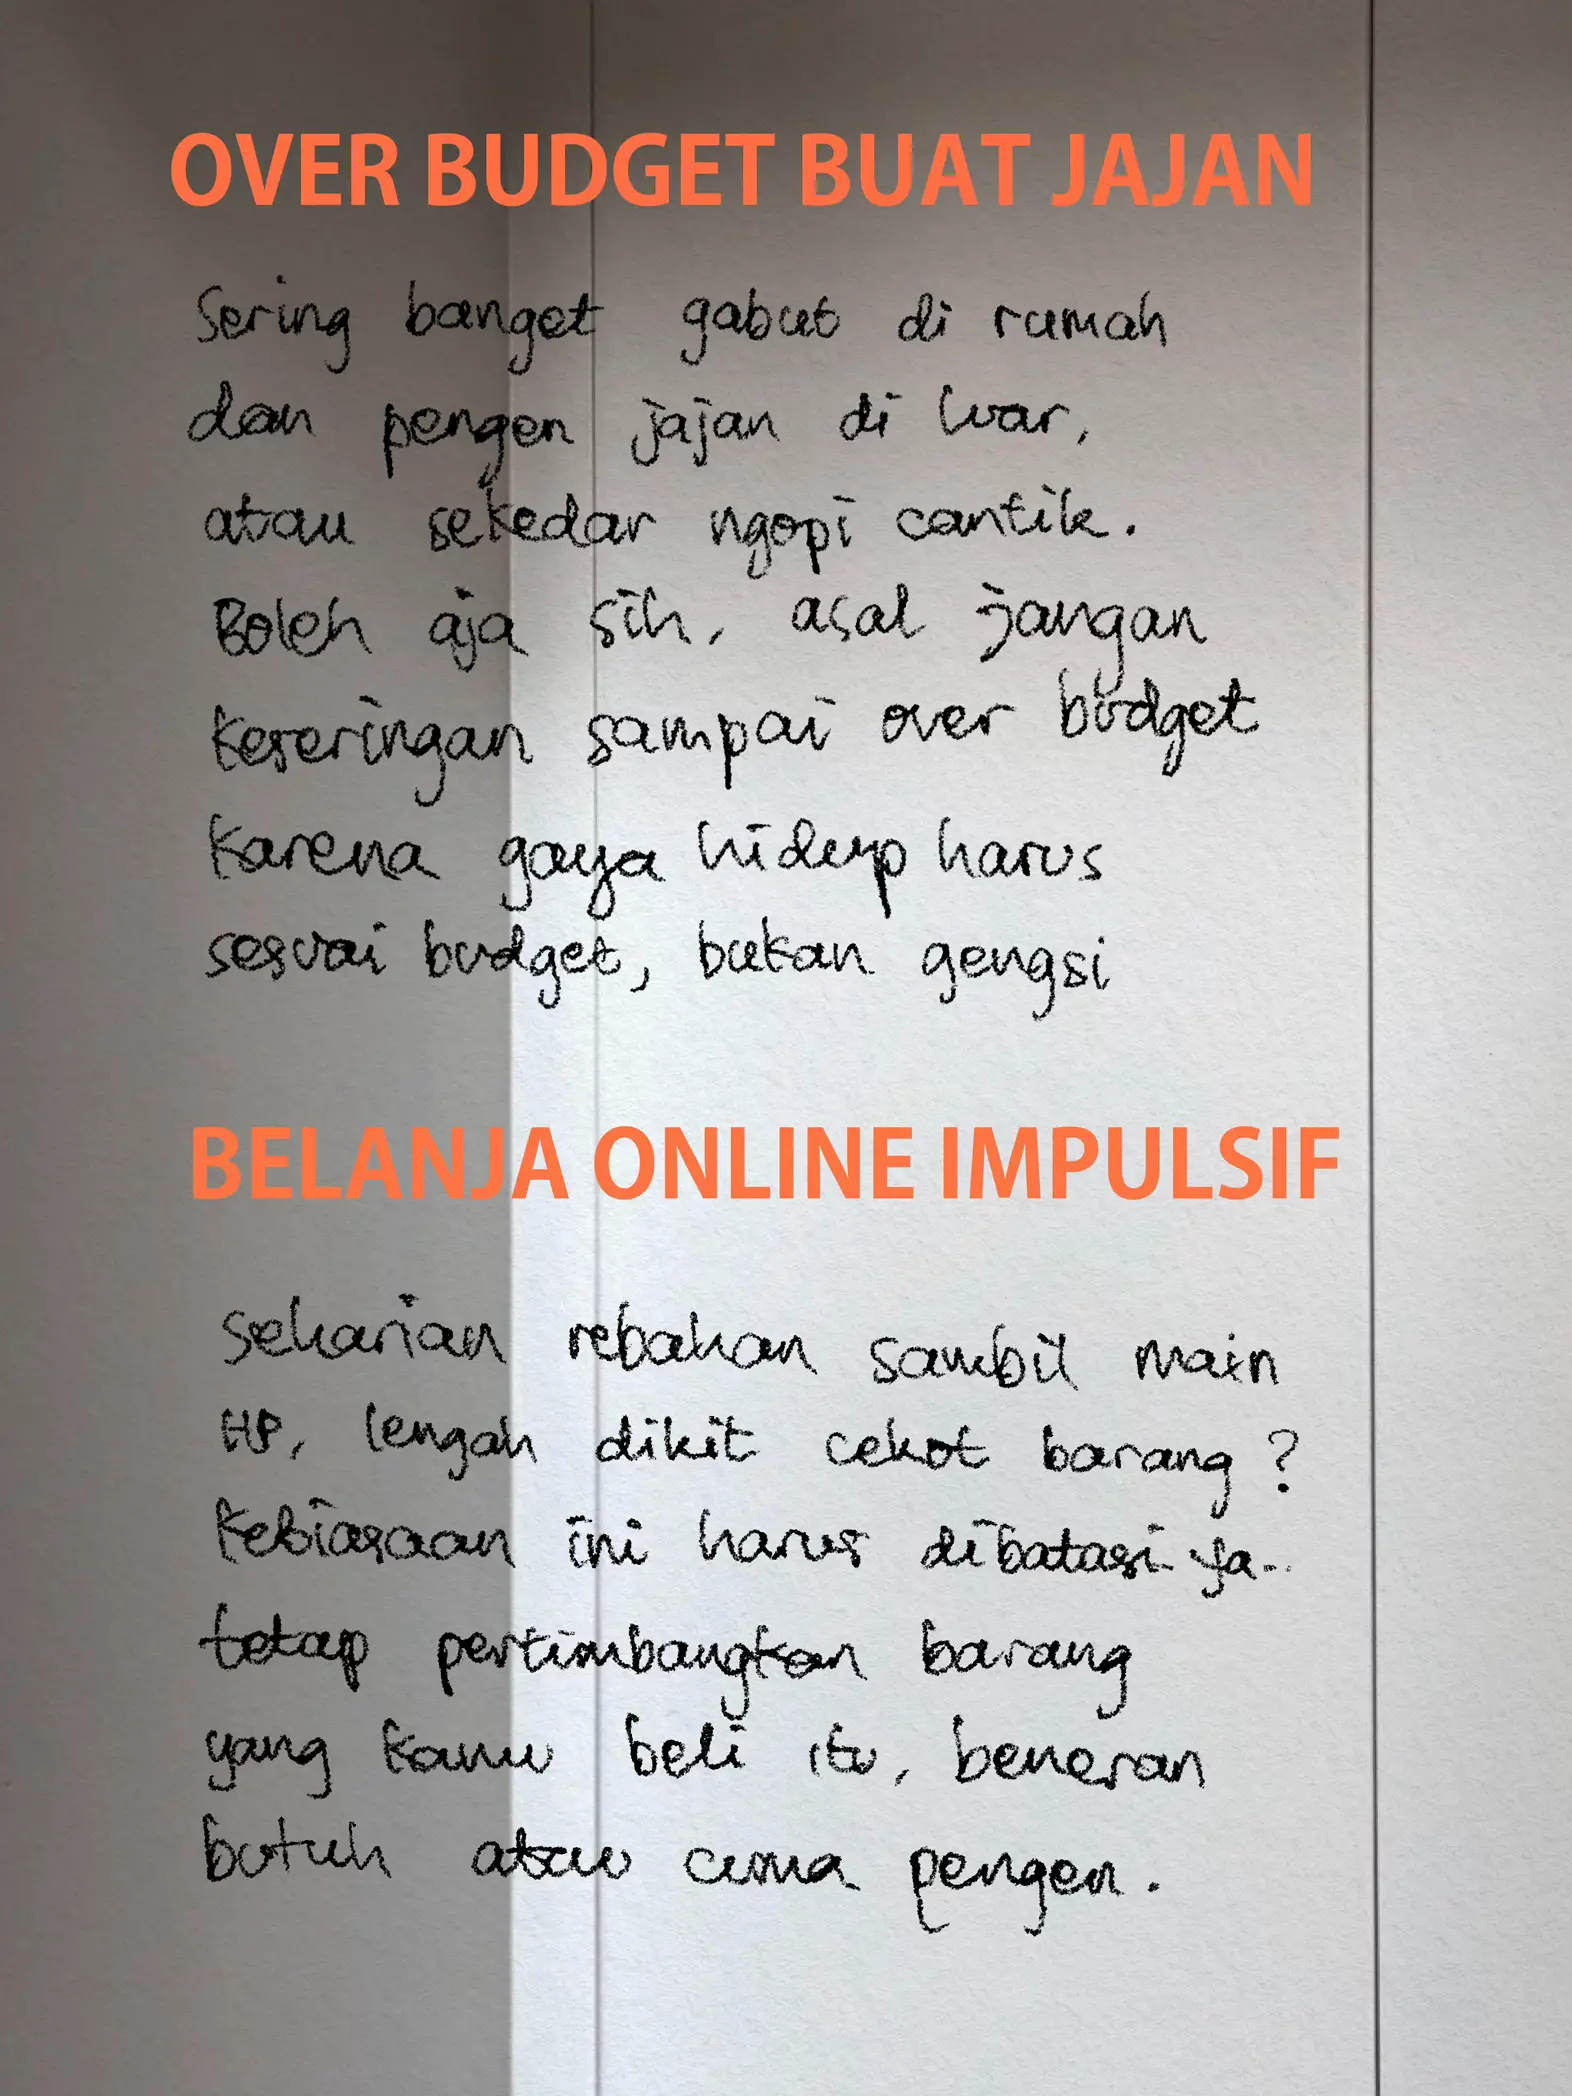 OVER BUDGET BUAT JAJAN
Sering banget gabut di rumah
dan pengen jajan di luar,
atau sekedar ngopi cantik.
Boleh aja sih, asal jangan
keseringan sampai over budget
karena gaya hidup harus
sesuai budget, bukan gengsi
BELANJA ONLINE IMPULSIF
Seharian rebahan sambil main
HP, lengah dikit cekot barang?
Kebiasaan ini harus dibatasi ya..
tetap pertimbangkan barang
yang kamu beli itu, beneran
butuh atau cuma pengen.